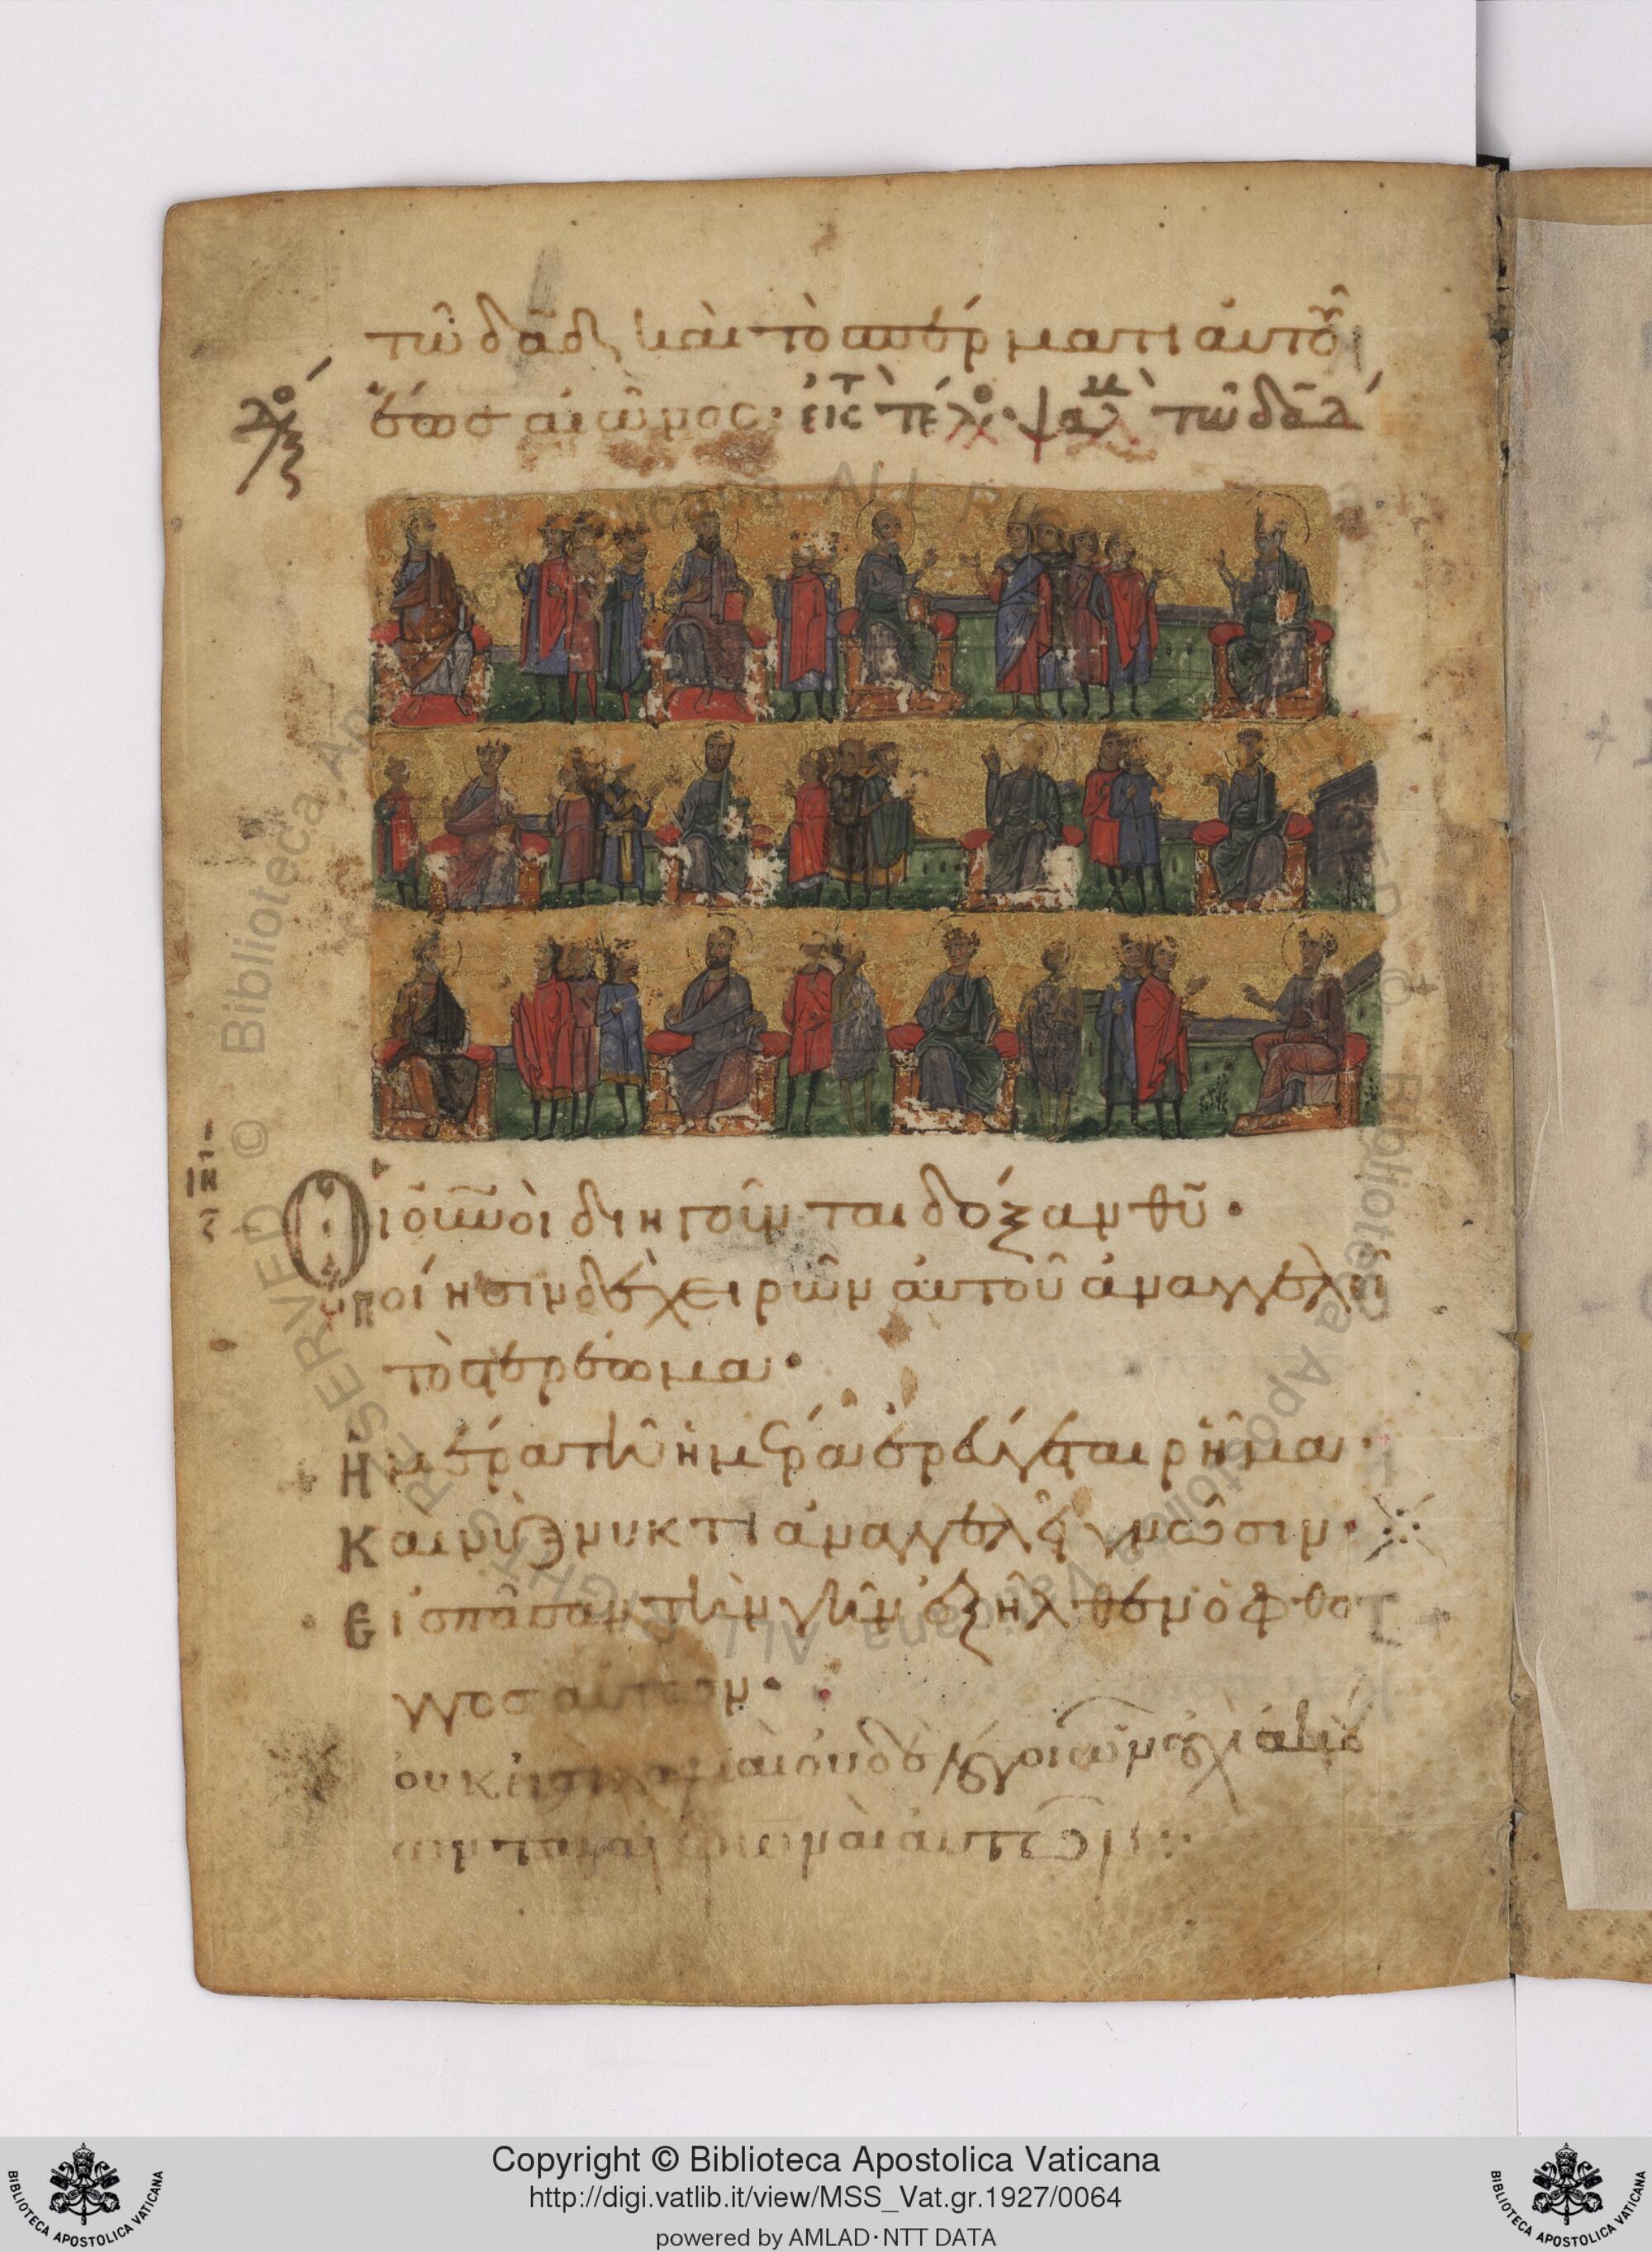 τῶ δᾱδ καὶ τὸ σπέρματι αὐτοῦ
ἕως αἰῶνος· εἰς τὸ τέλος· ψαλμὸς τῶ δᾱδ
Οἱ οὐνοὶ διηγοῦνται δόξαν θῡ·
ποίησιν δὲ χειρῶν αὐτοῦ ἀναγγέλλει
τὸ στερέωμα·
Ἡμέρα τῆ ἡμέρα ἐρεύγεται ρῆμα·
Και νὺξ νυκτὶ ἀναγγέλει γνῶσιν·
Εἰς πᾶσαν τὴν γῆν ἐξῆλθεν ὁ φθό
γγος αὐτῶν·
οὐκ εἰσὶ λαλιαὶ οὐδὲ λόγοι ὧν οὐχὶ
αἱ φωναὶ αὐτῶν:
Copyright © Biblioteca Apostolica Vaticana
http://digi.vatlib.it/view/MSS_Vat.gr.1927/0064
powered by AMLAD·NTT DATA
BIBLIOTECA APOSTOLICA VATICANA
BIBLIOTECA APOSTOLICA VATICANA